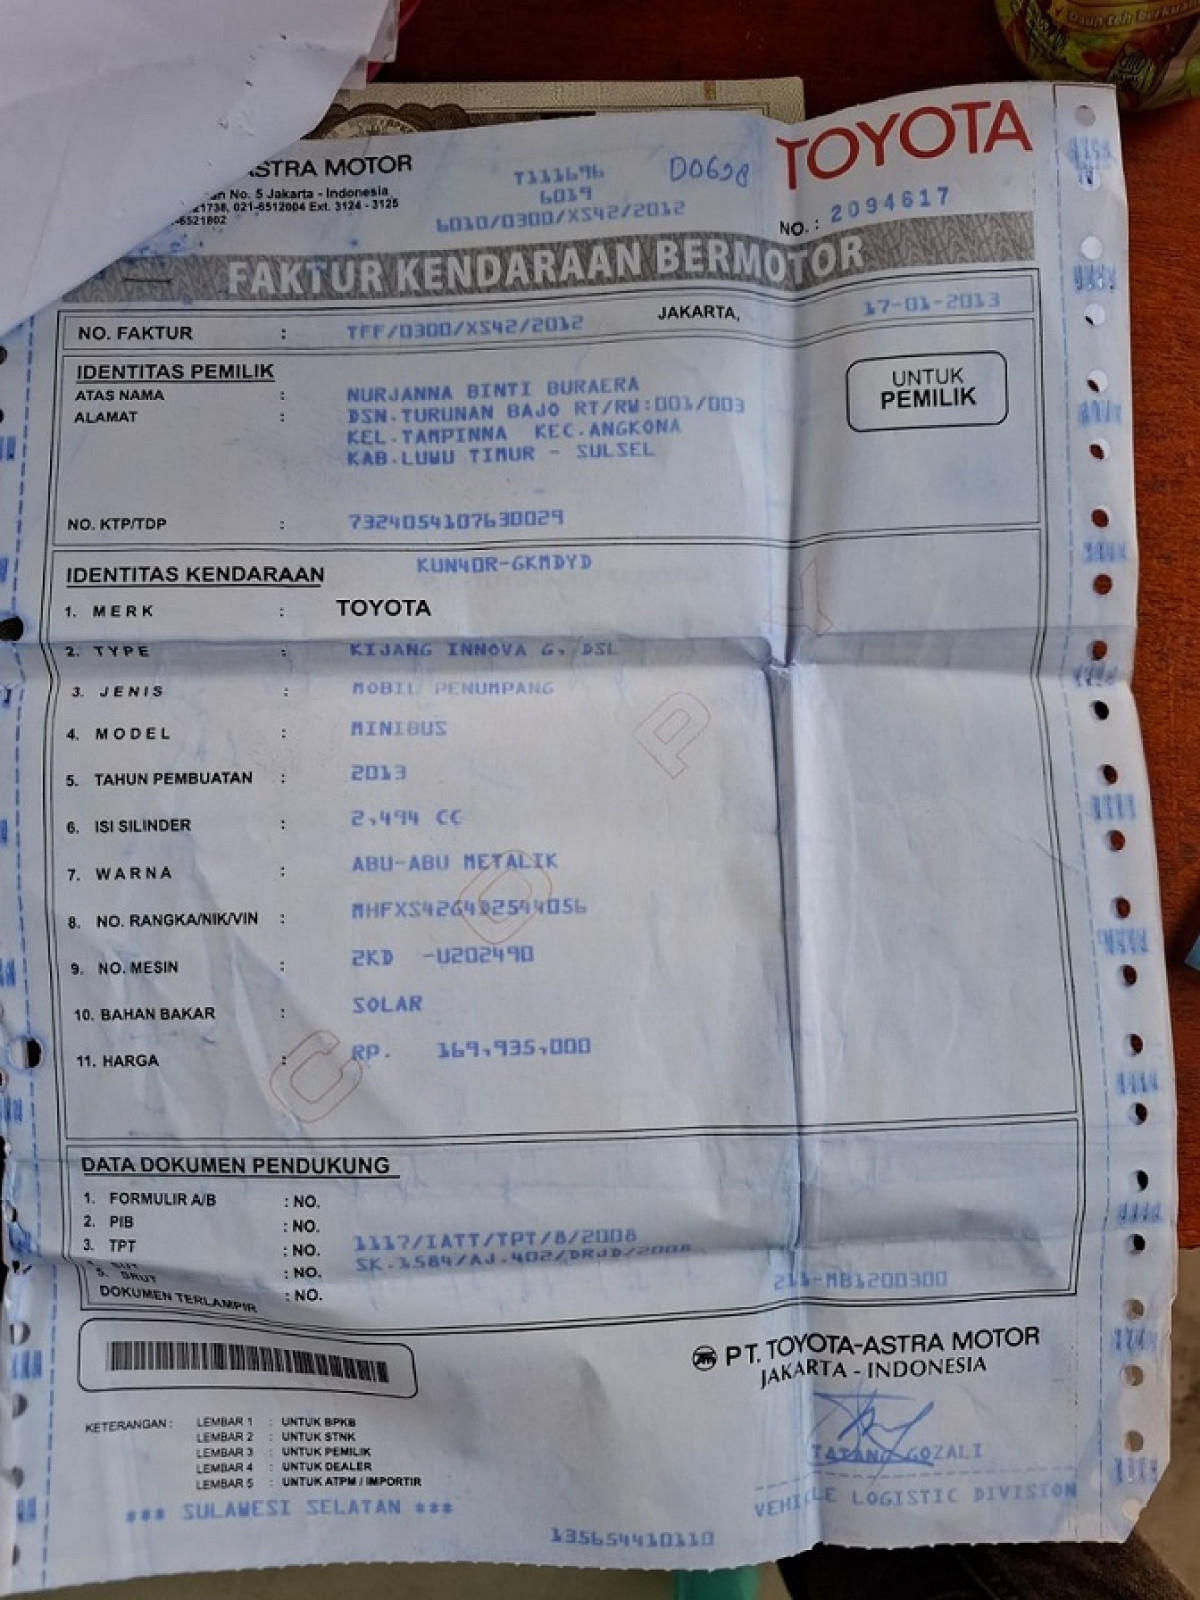 ASTRA MOTOR
No. 5 Jakarta - Indonesia
021-6512004 Ext. 3124 - 3125
T111696
6019
6010/0300/XS42/2012
D0628
TOYOTA
NO.: 2094617
FAKTUR KENDARAAN BERMOTOR
NO. FAKTUR : TFF/0300/XS42/2012 JAKARTA, 17-01-2013
IDENTITAS PEMILIK
UNTUK
PEMILIK
ATAS NAMA : NURJANNA BINTI BURAERA
ALAMAT : DSN.TURUNAN BAJO RT/RW:001/003
KEL.TAMPINNA KEC.ANGKONA
KAB.LUWU TIMUR - SULSEL
NO. KTP/TDP : 7324054107630029
IDENTITAS KENDARAAN KUN40R-GKMDYD
1. MERK : TOYOTA
2. TYPE : KIJANG INNOVA G, DSL
3. JENIS : MOBIL PENUMPANG
4. MODEL : MINIBUS
5. TAHUN PEMBUATAN : 2013
6. ISI SILINDER : 2,494 CC
7. WARNA : ABU-ABU METALIK
8. NO. RANGKA/NIK/VIN : MHFXS42G4D2544056
9. NO. MESIN : 2KD -U202490
10. BAHAN BAKAR : SOLAR
11. HARGA : RP. 169,935,000
COPY
DATA DOKUMEN PENDUKUNG
1. FORMULIR A/B : NO.
2. PIB : NO.
3. TPT : NO. 1117/IATT/TPT/8/2008
: NO. SK.1584/AJ.402/DRJD/2008
5. SRUT : NO. 211-MB1200300
DOKUMEN TERLAMPIR
PT. TOYOTA-ASTRA MOTOR
JAKARTA - INDONESIA
KETERANGAN : LEMBAR 1 : UNTUK BPKB
LEMBAR 2 : UNTUK STNK
LEMBAR 3 : UNTUK PEMILIK
LEMBAR 4 : UNTUK DEALER
LEMBAR 5 : UNTUK ATPM / IMPORTIR
TATANG GOZALI
VEHICLE LOGISTIC DIVISION
*** SULAWESI SELATAN ***
135654410110